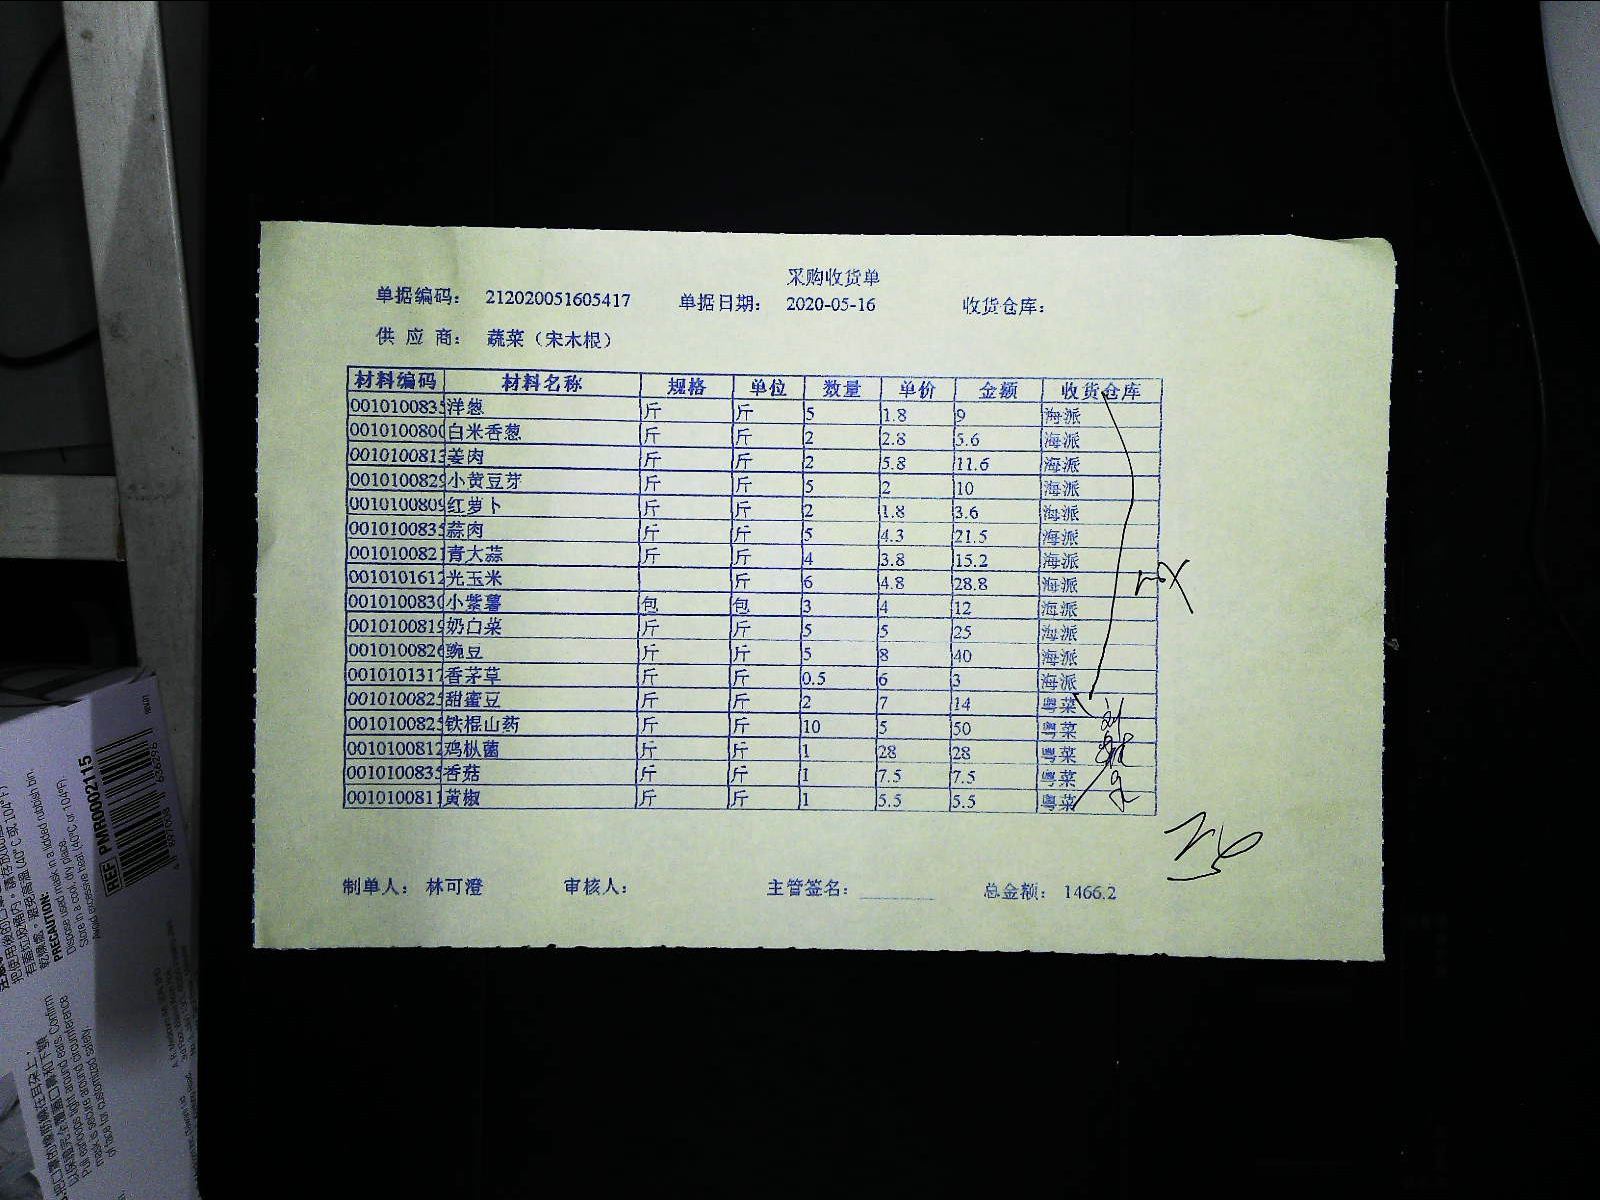 采购收货单
单据编码: 212020051605417 单据日期: 2020-05-16 收货仓库:
供 应 商: 蔬菜（宋木根）
材料编码 材料名称 规格 单位 数量 单价 金额 收货仓库
0010100835 洋葱 斤 斤 5 1.8 9 海派
0010100800 白米香葱 斤 斤 2 2.8 5.6 海派
0010100813 姜肉 斤 斤 2 5.8 11.6 海派
0010100829 小黄豆芽 斤 斤 5 2 10 海派
0010100809 红萝卜 斤 斤 2 1.8 3.6 海派
0010100835 蒜肉 斤 斤 5 4.3 21.5 海派
0010100821 青大蒜 斤 斤 4 3.8 15.2 海派
0010101612 光玉米 斤 6 4.8 28.8 海派
0010100830 小紫薯 包 包 3 4 12 海派
0010100819 奶白菜 斤 斤 5 5 25 海派
0010100826 豌豆 斤 斤 5 8 40 海派
0010101317 香茅草 斤 斤 0.5 6 3 海派
0010100825 甜蜜豆 斤 斤 2 7 14 粤菜
0010100825 铁棍山药 斤 斤 10 5 50 粤菜
0010100812 鸡枞菌 斤 斤 1 28 28 粤菜
0010100835 香菇 斤 斤 1 7.5 7.5 粤菜
0010100811 黄椒 斤 斤 1 5.5 5.5 粤菜
制单人: 林可澄 审核人: 主管签名: 总金额: 1466.2
REF PMR0002115
PRECAUTION:
Dispose used mask in a lidded rubbish bin.
Store in a cool, dry place.
Avoid excessive heat (40°C or 104°F)
Pull earloops tight around ears. Confirm
mask is secure around circumference
of face for customized safety.